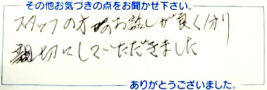 その他お気づきの点をお聞かせ下さい。
スタッフの方のお話しが良く分り
親切にしていただきました
ありがとうございました。